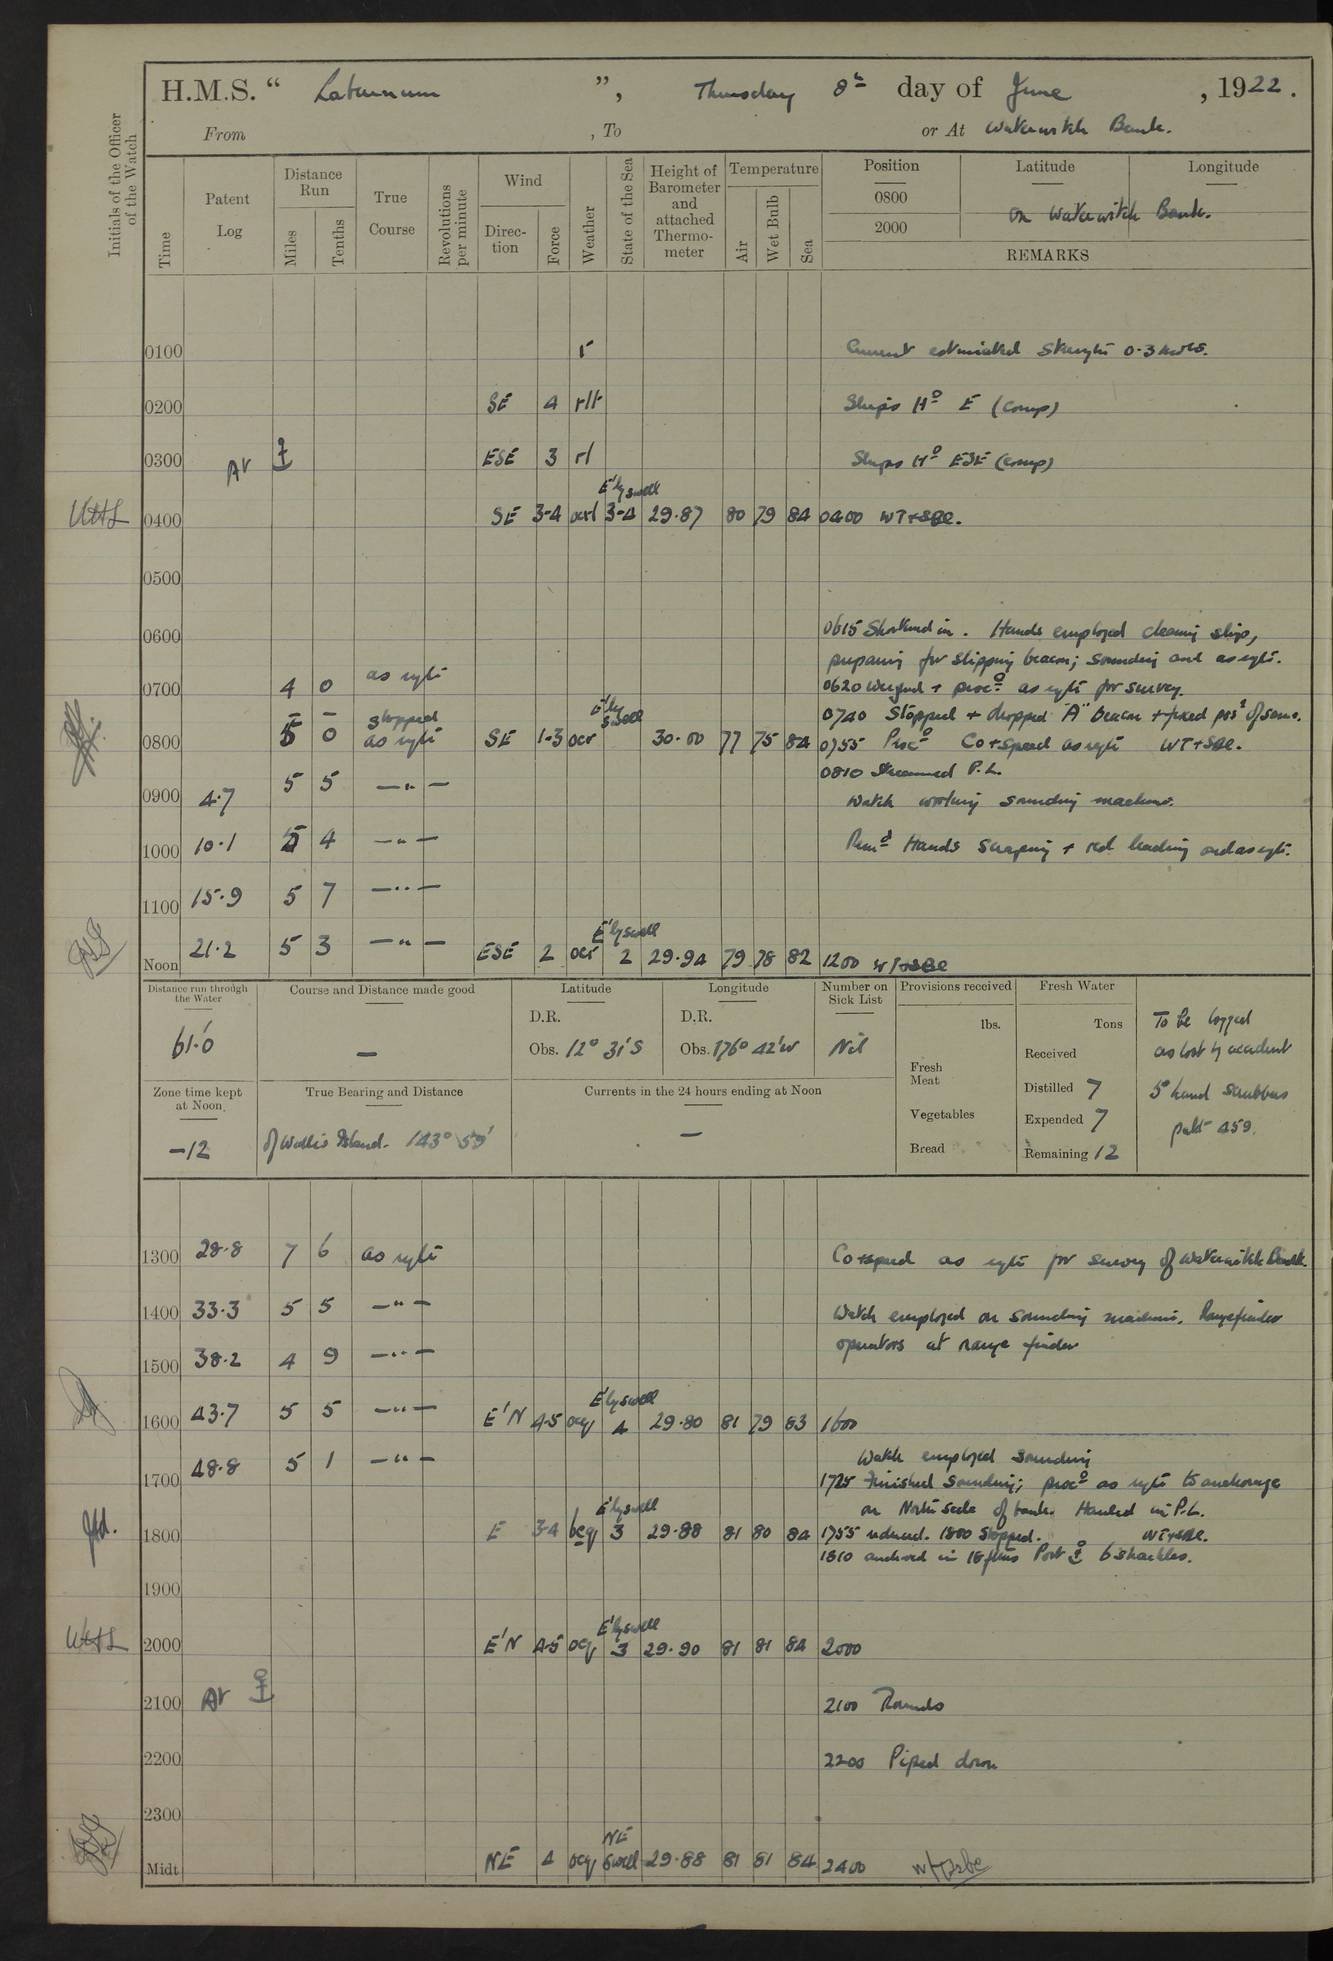 H.M.S. " Laburnum ", Thursday 8th day of June, 1922.
From , To or At Waterwitch Bank.
Initials of the Officer of the Watch
Time Patent Log Distance Run Miles Tenths True Course Revolutions per minute Wind Direction Force Weather State of the Sea Height of Barometer and attached Thermometer Temperature Air Wet Bulb Sea Position 0800 2000 Latitude Longitude
On Waterwitch Bank.
REMARKS
0100 r Current estimated strength 0.3 knots.
0200 SE 4 Ships Hd E (Comp)
0300 At ⚓ ESE 3 rl Ships Hd ESE (Comp)
E'ly swell
0400 SE 3-4 ocrl 3-4 29.87 80 79 84 0400 WT+SBE.
0500
0600 0615 Shortened in. Hands employed cleaning ship,
preparing for slipping beacon; sounding and as reqte.
0700 4 0 as reqte 0620 Weighed + procd as reqte for survey.
- - stopped E'ly swell 0740 Stopped + dropped "A" beacon + fixed posn of same.
0800 5 0 as reqte SE 1-3 ocr 30.00 77 75 84 0755 Procd Co+speed as reqte WT+SBE.
0810 Streamed P.L.
0900 4.7 5 5 —"— Watch working sounding machine.
1000 10.1 5 4 —"— Remd Hands scraping + red leading and as reqte.
1100 15.9 5 7 —"—
E'ly swell
Noon 21.2 5 3 —"— ESE 2 ocr 2 29.94 79 78 82 1200 WT+SBE
Distance run through the Water Course and Distance made good Latitude Longitude Number on Sick List Provisions received Fresh Water
61.0 — D.R. Obs. 12° 31' S D.R. Obs. 176° 42' W Nil lbs. Tons
Fresh Meat
Vegetables
Bread
Received
Distilled 7
Expended 7
Remaining 12
To be logged
as lost by accident
5 hand scrubbers
patt 459.
Zone time kept at Noon True Bearing and Distance Currents in the 24 hours ending at Noon
-12 of Wallis Island. 143° 59' —
1300 28.8 7 6 as reqte Co+speed as reqte for survey of Waterwitch Bank.
1400 33.3 5 5 —"— Watch employed on sounding machine. Rangefinder
1500 38.2 4 9 —"— operators at range finder
E'ly swell
1600 43.7 5 5 —"— E'N 4-5 ocq 4 29.80 81 79 83 1600
Watch employed sounding
1700 48.8 5 1 —"— 1725 Finished sounding; procd as reqte to anchorage
E'ly swell on North side of bank. Hauled in P.L.
1800 E 3-4 bcq 3 29.88 81 80 84 1755 reduced. 1800 Stopped. WT+SBE.
1810 anchored in 18 fms Port ⚓ 6 shackles.
1900
E'ly swell
2000 E'N 4-5 ocq 3 29.90 81 81 84 2000
2100 At ⚓ 2100 Rounds
2200 2200 Piped down
2300
NE
Midt NE 4 ocq swell 29.88 81 81 84 2400 wt+sbe